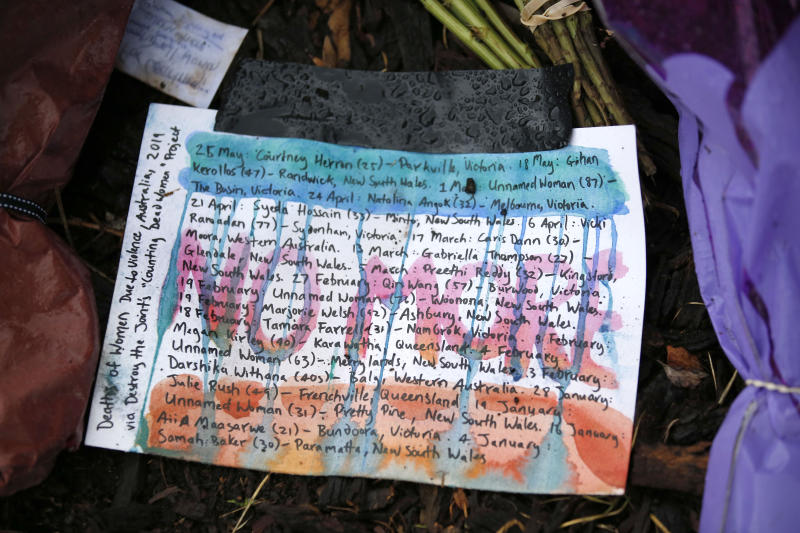 Deaths of Women Due to Violence, Australia, 2019
via Destroy the Joint's "Counting Dead Women" Project
25 May: Courtney Herron (25) - Parkville, Victoria. 18 May: Gihan
Kerollos (47) - Randwick, New South Wales. 1 May Unnamed Woman (87) -
The Basin, Victoria. 24 April: Natalina Angok (32) - Melbourne, Victoria.
21 April: Syeda Hossain (33) - Minto, New South Wales. 6 April: Vicki
Ramadan (77) - Sydenham, Victoria. 17 March: Caris Dann (30) -
Moora, Western Australia. 13 March: Gabriella Thompson (27) -
Glendale, New South Wales. March Preethi Reddy (32) - Kingsford,
New South Wales. 27 February Qi Wang (57) - Burwood, Victoria.
19 February: Unnamed Woman - Woonona, New South Wales.
19 February: Marjorie Welsh (92) - Ashbury, New South Wales.
18 February: Tamara Farrell (31) - Namgrok, Victoria. February:
Megan Kirley (40) Karawatha, Queensland. 4 February:
Unnamed Woman (63) - Merrylands, New South Wales. 3 February:
Darshika Withana (40s) - Baly Western Australia. 28 January:
Julie Rush - Frenchville, Queensland. 19 January:
Unnamed Woman (31) - Pretty Pine, New South Wales. January:
Aiia Maasarwe (21) - Bundoora, Victoria. 4 January:
Samah Baker (30) - Paramatta, New South Wales
NO MORE